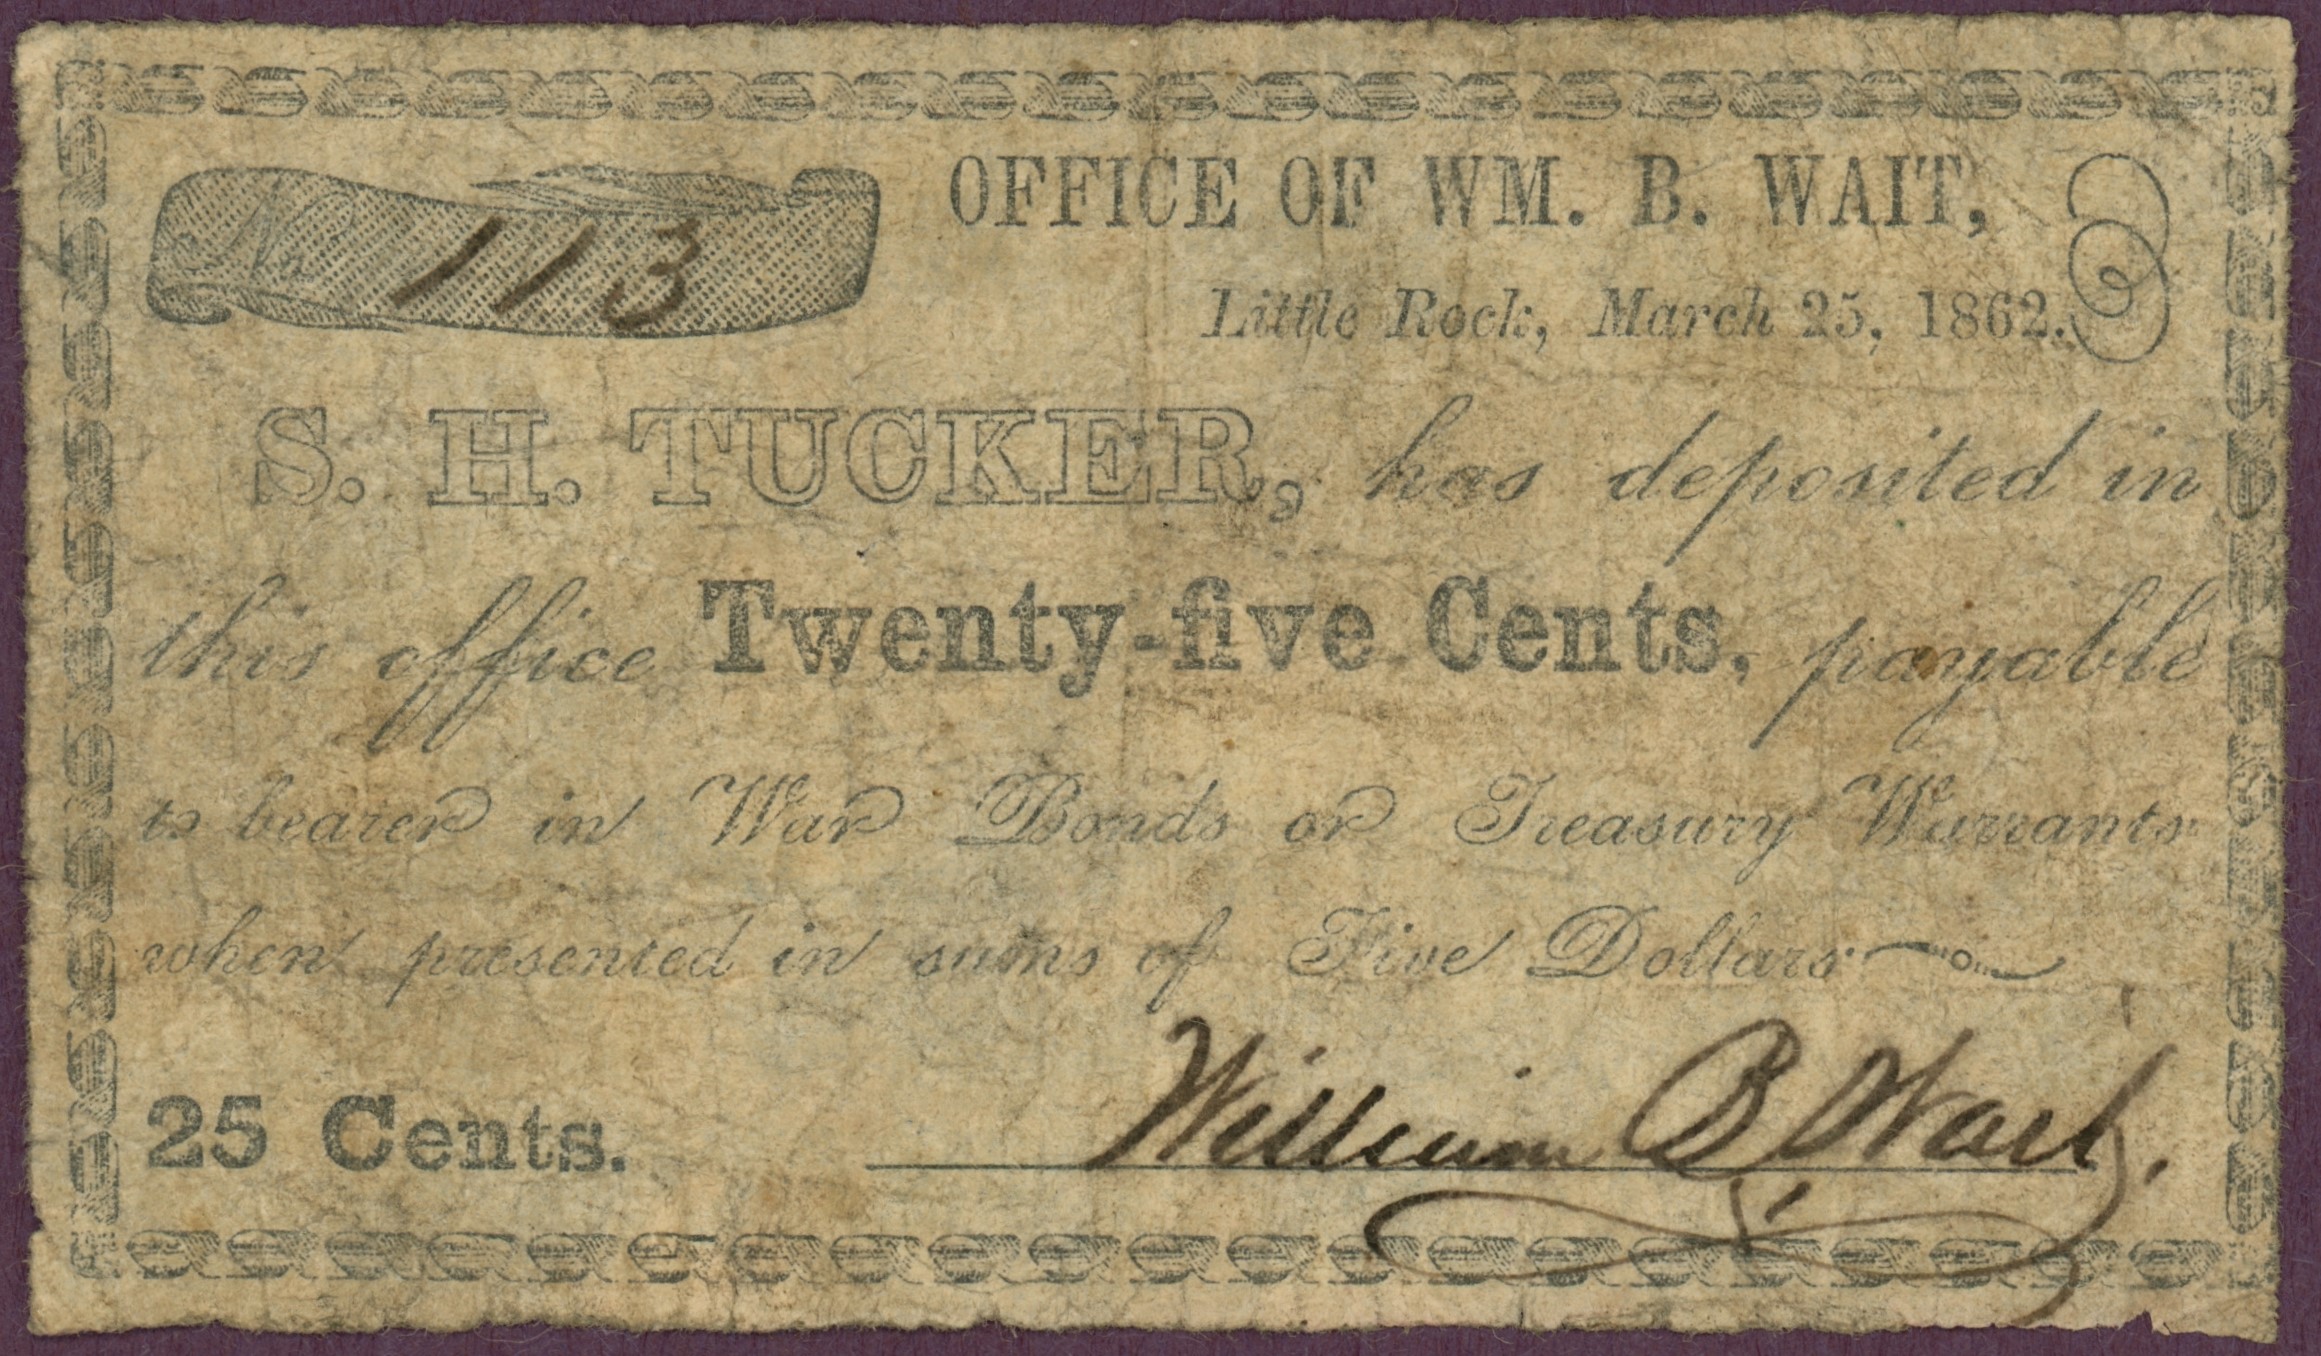 No 113
OFFICE OF WM. B. WAIT,
Little Rock, March 25, 1862.
S. H. TUCKER, has deposited in
this office Twenty-five Cents, payable
to bearer in War Bonds or Treasury Warrants
when presented in sums of Five Dollars
25 Cents.
William B Wait.